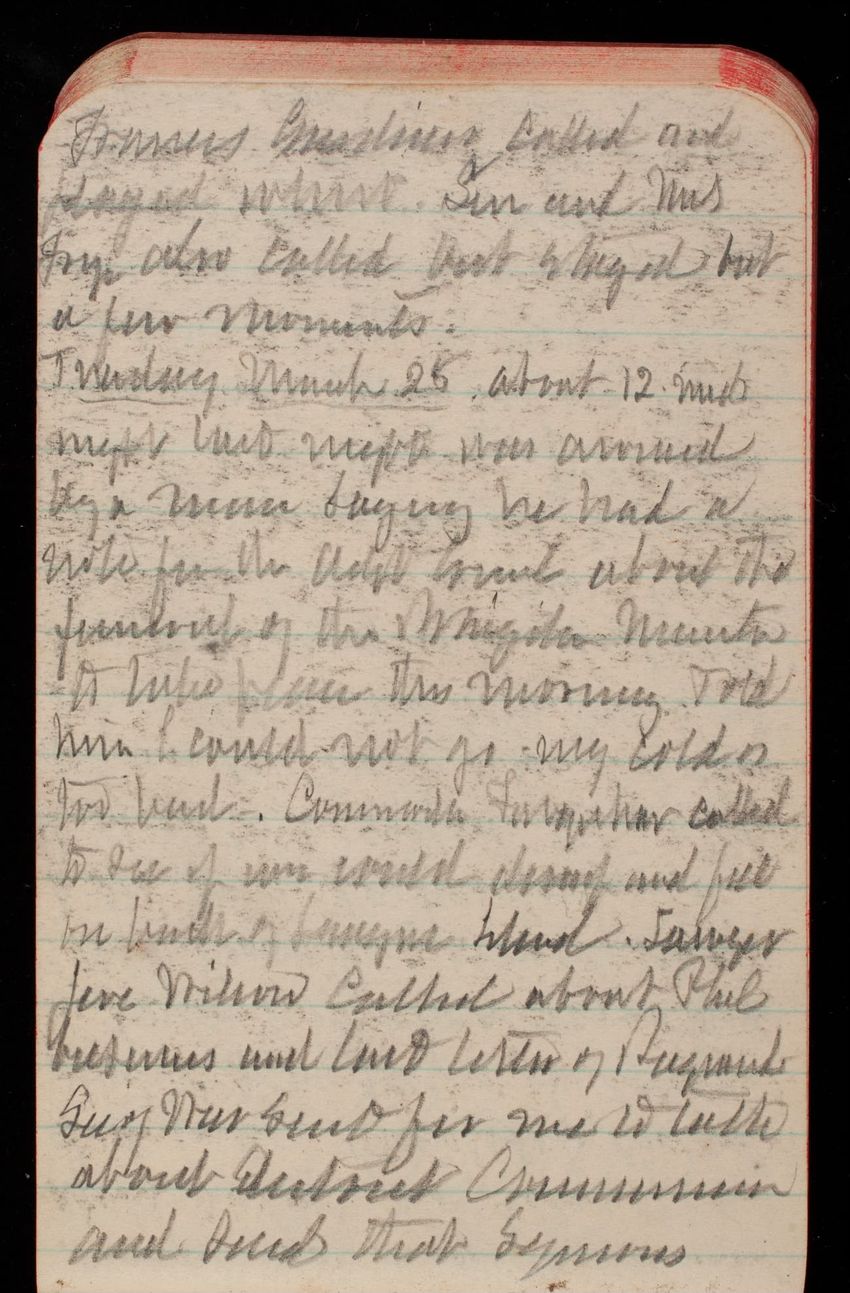 Frances Gardiner called and
played whist. Gen and Mrs
Fry also called but stayed but
a few moments.
Tuesday March 25. about 12 mid
night last night was aroused
by a man saying he had a
note for the Adjt Genl about the
funeral of the Minister
to take place this morning Told
him I could not go my cold is
too bad. Commodore called
to see if we could and fill
on bank of Island. Lawyer
Jere Wilson called about Phil
business and last letter of
Sec of War sent for me to talk
about District Commission
and said that Symons